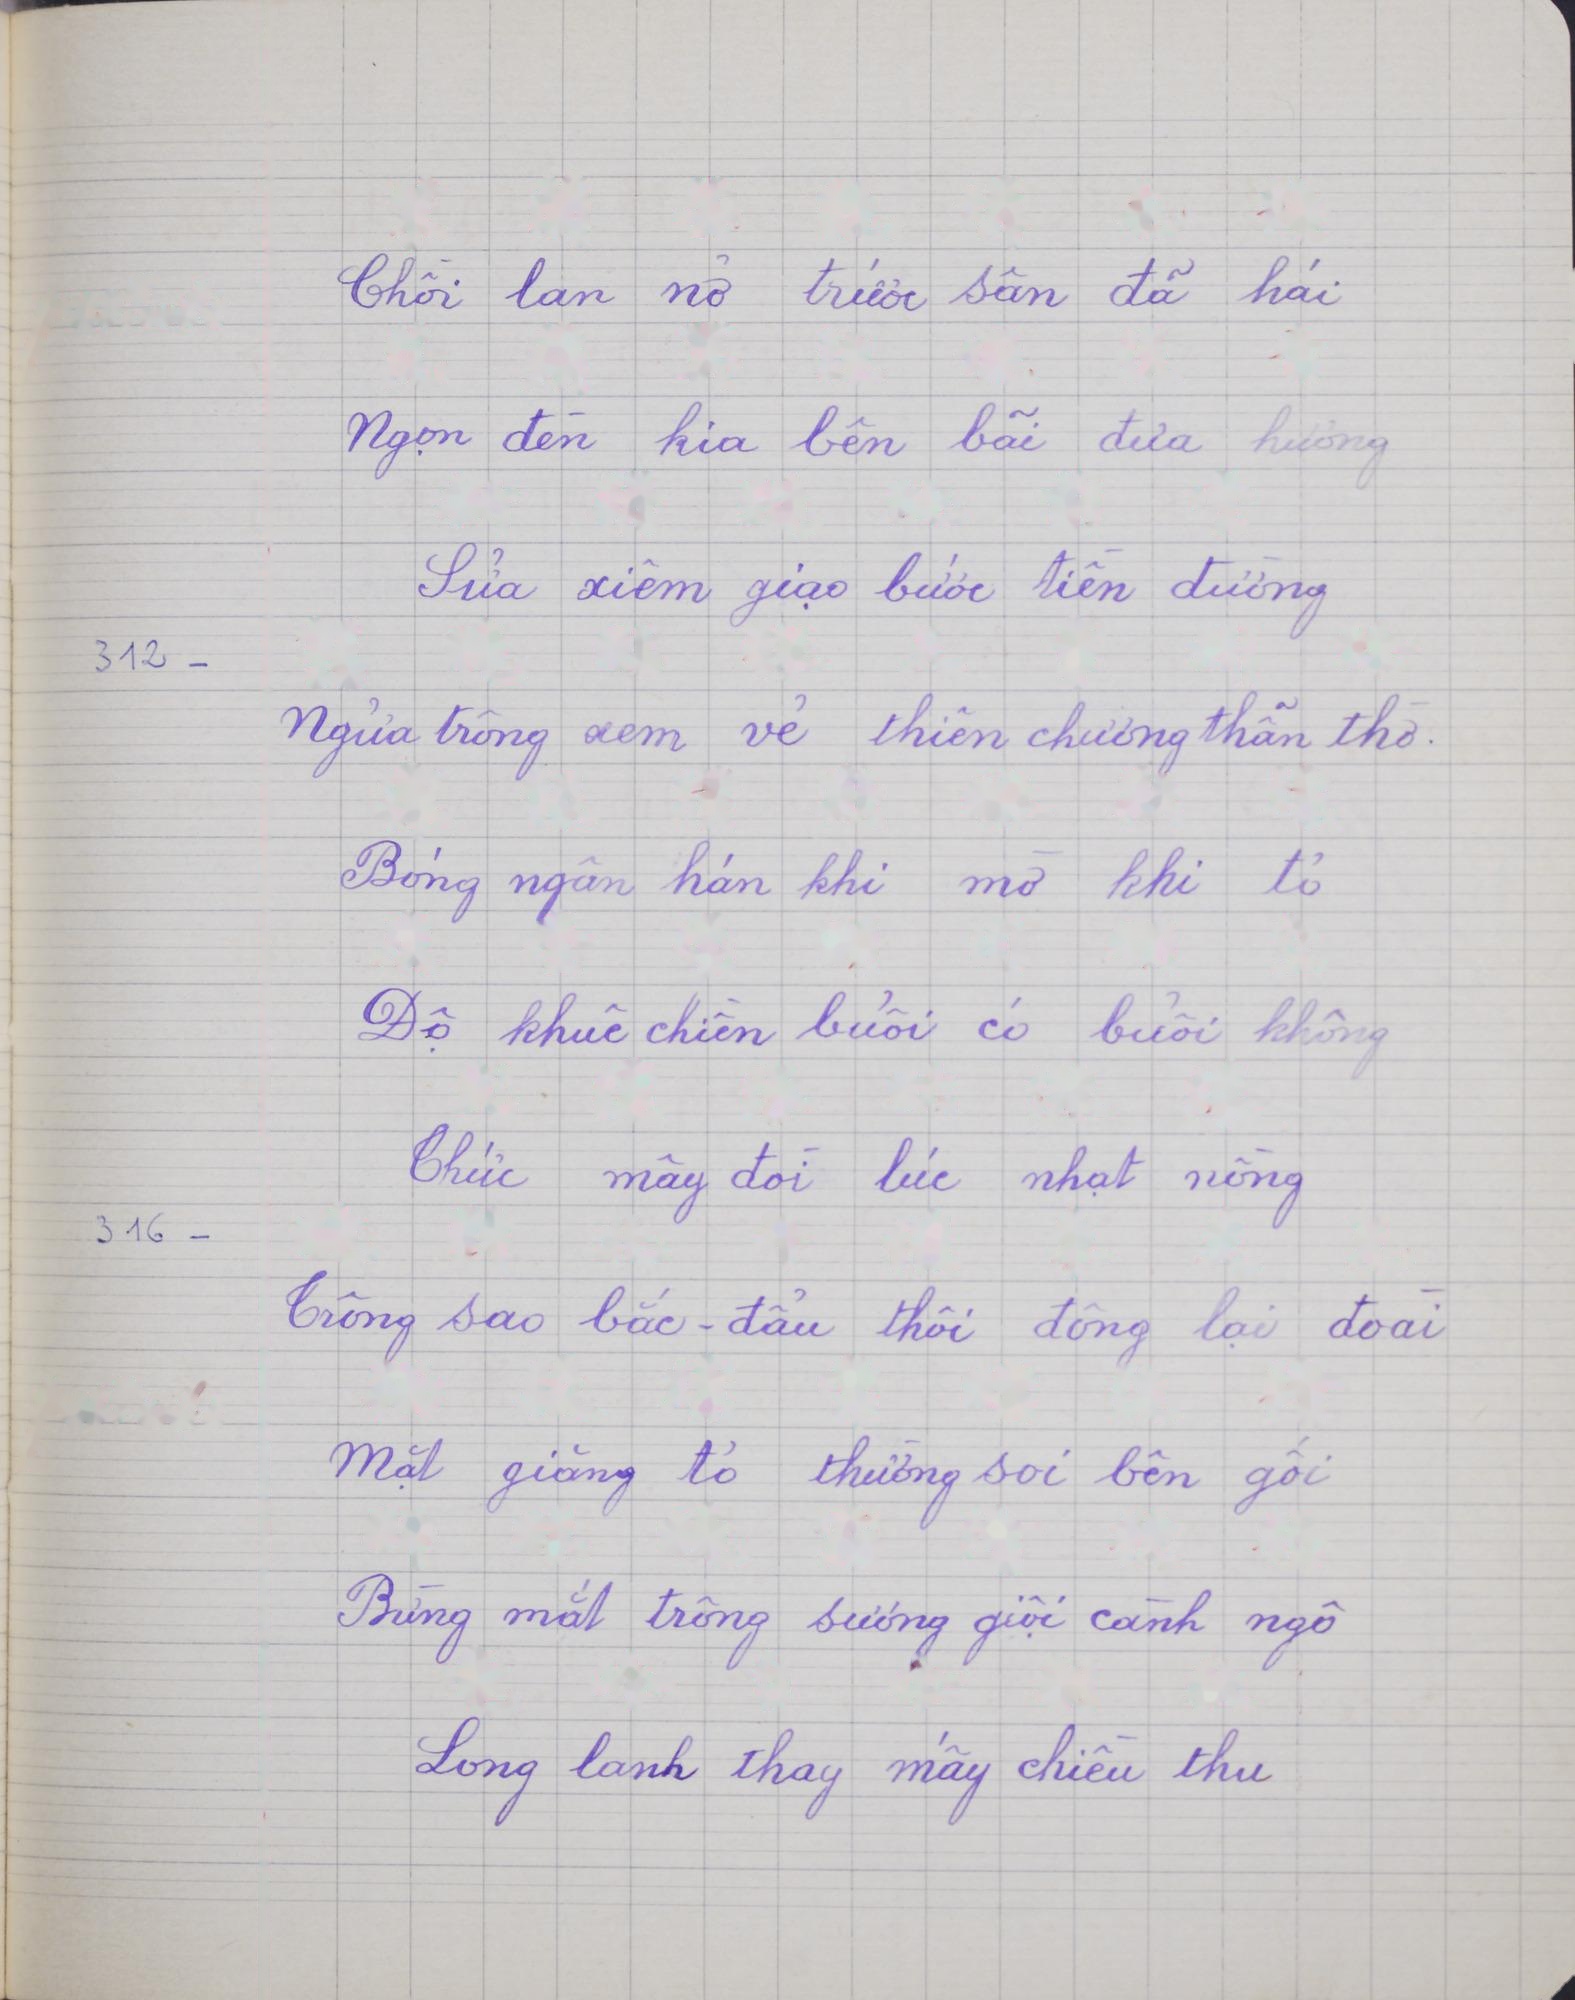 Chồi lan nở trước sân đã hái
Ngọn đèn kia bên bãi đưa hương
Sửa xiêm giạo bước tiền đường
312 -
Ngửa trông xem vẻ thiên chương thẫn thờ.
Bóng ngân hán khi mờ khi tỏ
Độ khuê chiền buổi có buổi không
Thức mây đòi lúc nhạt nồng
316 -
Trông sao bắc-đẩu thôi đông lại đoài
Mặt giăng tỏ thường soi bên gối
Bừng mắt trông sương giội cành ngô
Long lanh thay mấy chiều thu